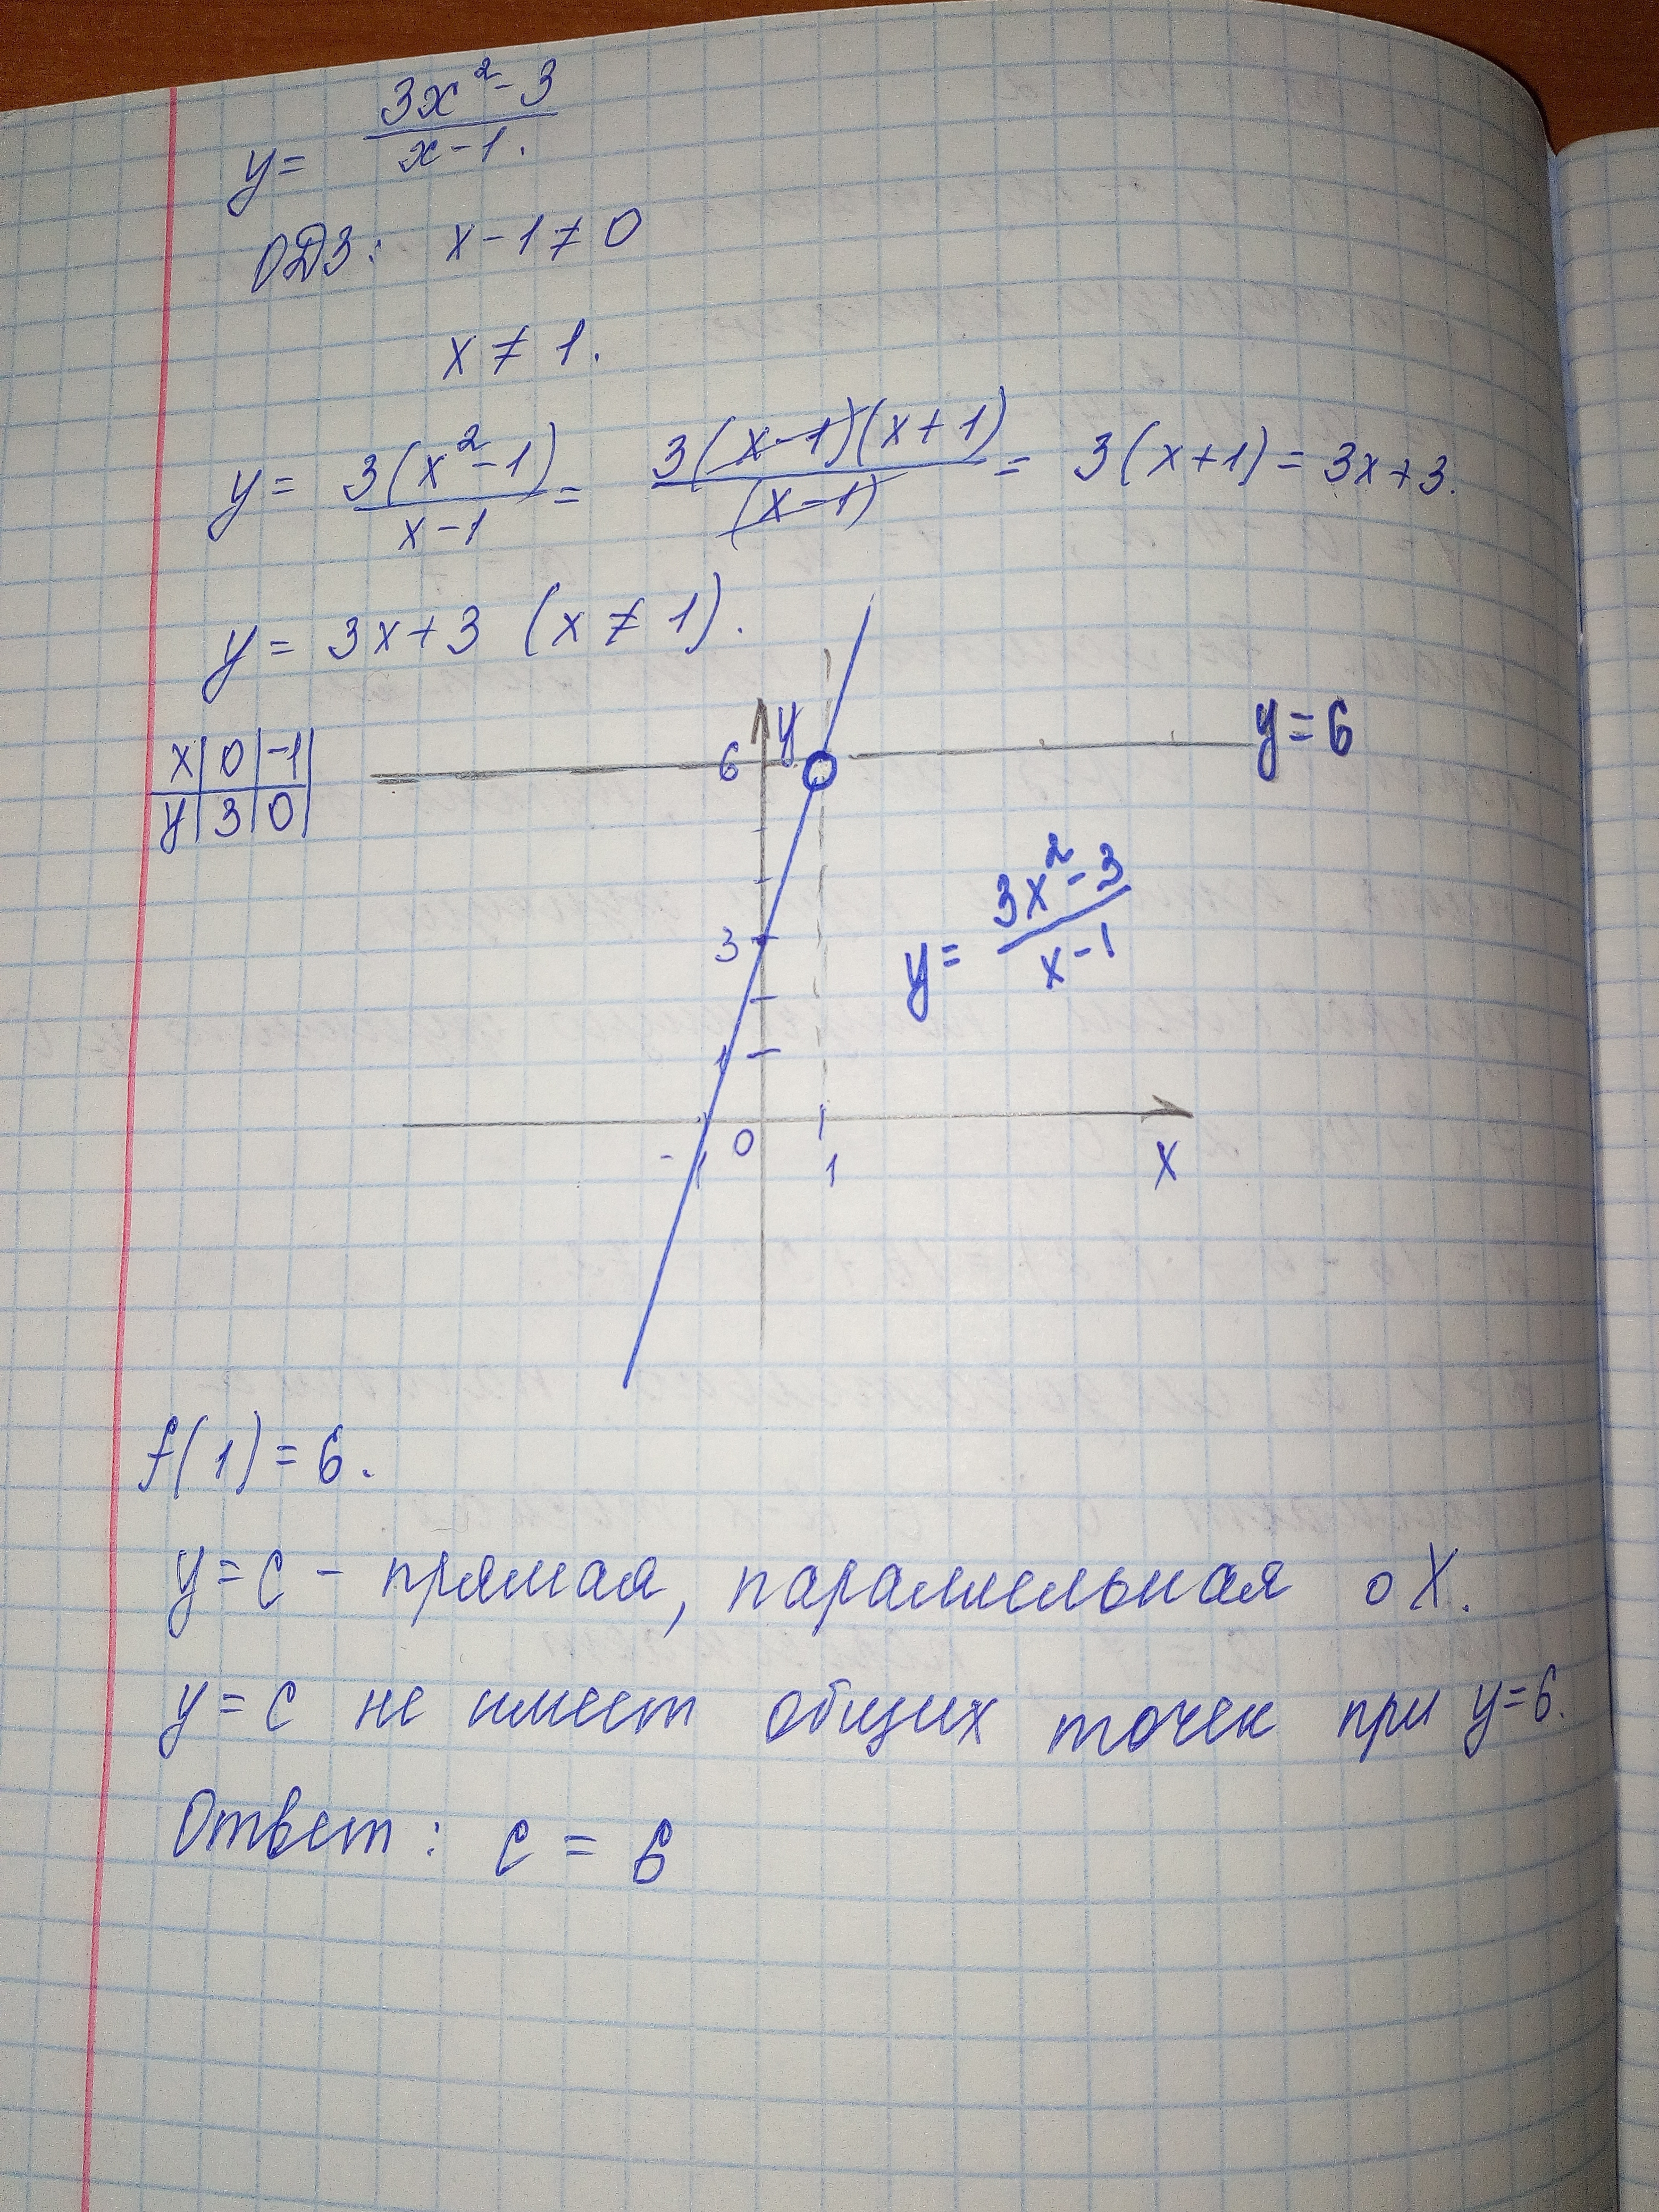 y = (3x² - 3)/(x - 1).
ОДЗ: x - 1 ≠ 0
x ≠ 1.
y = 3(x² - 1)/(x - 1) = 3(x - 1)(x + 1)/(x - 1) = 3(x + 1) = 3x + 3.
y = 3x + 3 (x ≠ 1).
x | 0 | -1 |
y | 3 | 0 |
y
6
y = 6
y = (3x² - 3)/(x - 1)
3
1
-1
0
1
X
f(1) = 6.
y = c - прямая, параллельная оX.
y = c не имеет общих точек при y = 6.
Ответ: c = 6